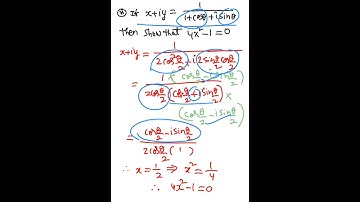 * If x+iy = 1 / (1+cosθ+isinθ)
then show that 4x²-1=0
x+iy = 1 / (2cos²θ/2 - i 2sinθ/2 cosθ/2)
= 1 / (2cosθ/2 (cosθ/2 + i sinθ/2)) × (cosθ/2 - i sinθ/2) / (cosθ/2 - i sinθ/2)
= (cosθ/2 - i sinθ/2) / (2cosθ/2 (1))
∴ x = 1/2 ⇒ x² = 1/4
∴ 4x²-1=0